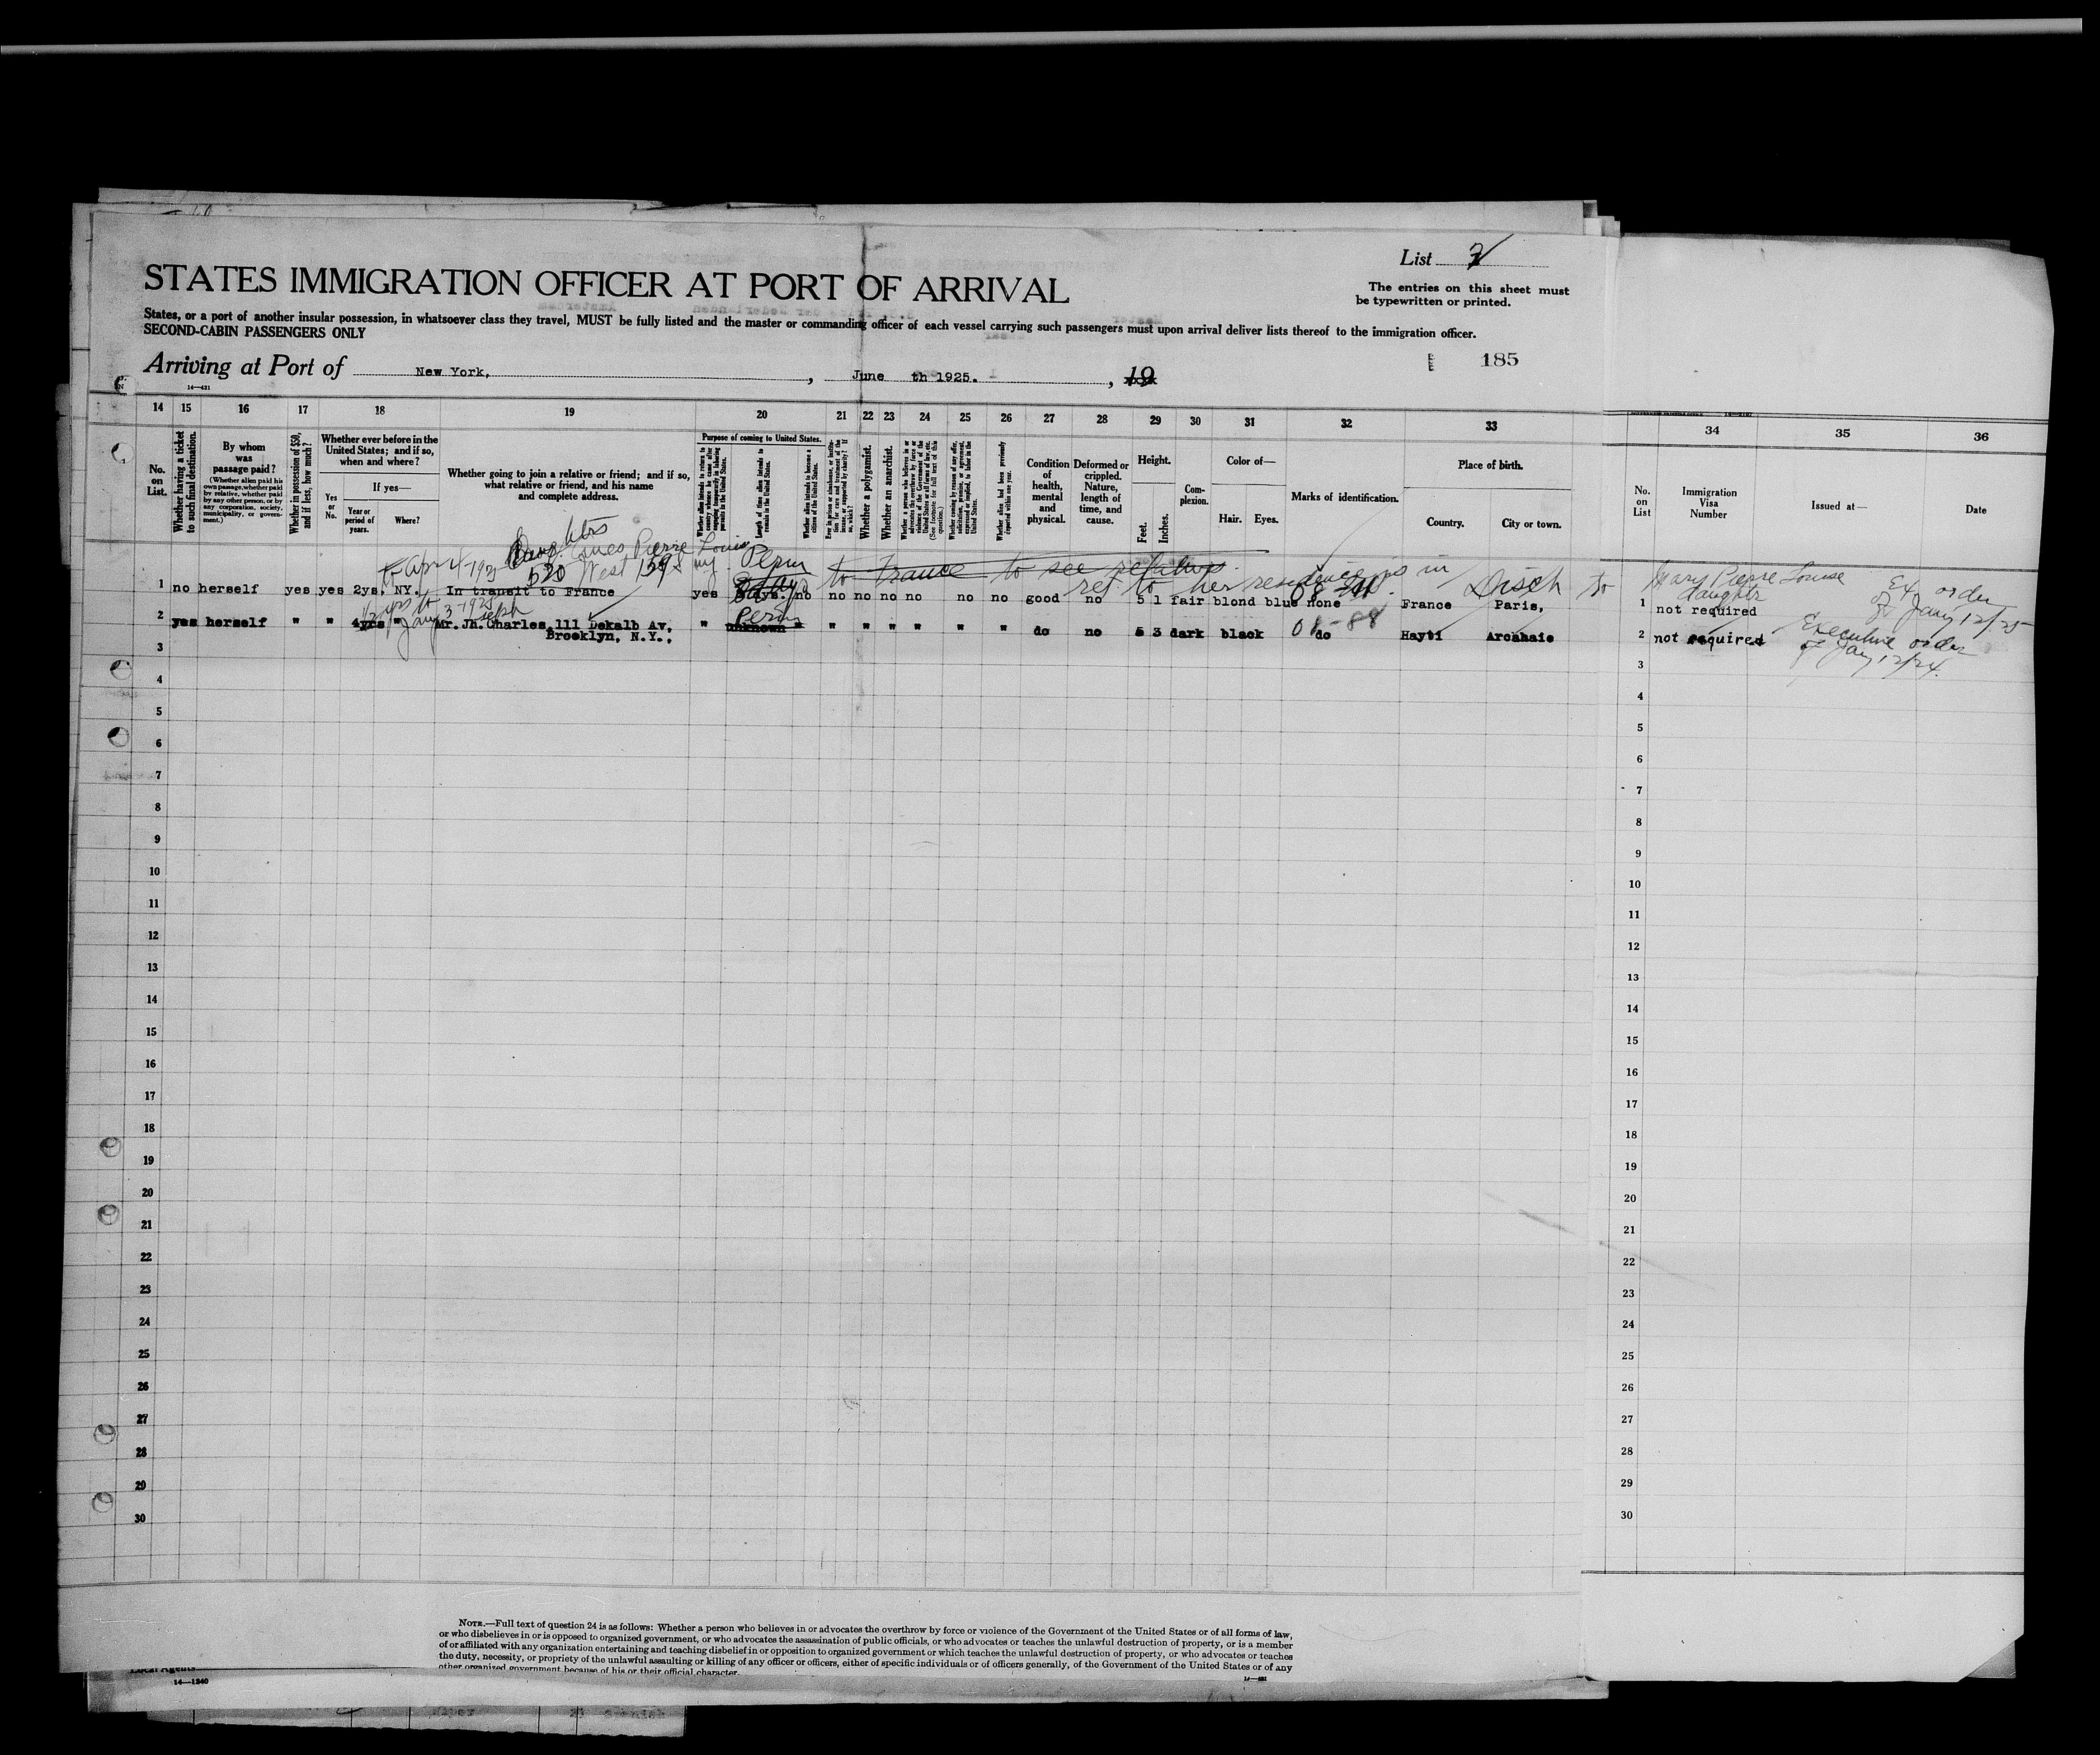 List 3
STATES IMMIGRATION OFFICER AT PORT OF ARRIVAL
The entries on this sheet must
be typewritten or printed.
States, or a port of another insular possession, in whatsoever class they travel, MUST be fully listed and the master or commanding officer of each vessel carrying such passengers must upon arrival deliver lists thereof to the immigration officer.
SECOND-CABIN PASSENGERS ONLY
Arriving at Port of New York, , June th 1925. , 19
185
14—431
14 15 16 17 18 19 20 21 22 23 24 25 26 27 28 29 30 31 32 33 34 35 36
No. on List.
Whether having a ticket to such final destination.
By whom was passage paid?
(Whether alien paid his own passage, whether paid by relative, whether paid by any other person, or by any corporation, society, municipality, or government.)
Whether in possession of $50, and if less, how much?
Whether ever before in the United States; and if so, when and where?
If yes—
Yes or No.
Year or period of years.
Where?
Whether going to join a relative or friend; and if so, what relative or friend, and his name and complete address.
Purpose of coming to United States.
Whether alien intends to return to country whence he came after engaging temporarily in laboring pursuits in the United States.
Length of time alien intends to remain in the United States.
Whether alien intends to become a citizen of the United States.
Ever in prison or almshouse, or institution for care and treatment of the insane, or supported by charity? If so, which?
Whether a polygamist.
Whether an anarchist.
Whether a person who believes in or advocates the overthrow by force or violence of the Government of the United States or of all forms of law, etc. (See footnote for full text of this question.)
Whether coming by reason of any offer, solicitation, promise, or agreement, expressed or implied, to labor in the United States.
Whether alien had been previously deported within one year.
Condition of health, mental and physical.
Deformed or crippled. Nature, length of time, and cause.
Height.
Feet.
Inches.
Complexion.
Color of—
Hair.
Eyes.
Marks of identification.
Place of birth.
Country.
City or town.
No. on List
Immigration Visa Number
Issued at—
Date
Daughter
Pierre Louis
520 West 159 ny
Perm
to France to see relatives
ret to her residence in
Disch to
Mary Pierre Louise
daughter
Ex order
of Jany 12/25
1 no herself yes yes 2ys. NY. In transit to France yes 8days. no no no no no no no good no 5 1 fair blond blue none France Paris,
1 not required
Jany 3-1925
seph
Perm
2 yes herself " " 4yrs " Mr. Jh. Charles 111 Dekalb Av, " unknown " " " " " " " do no 5 3 dark black do Hayti Arcahaie
Brooklyn, N.Y.,
08-88
2 not required
Executive order
of Jany 12/24.
3
4
5
6
7
8
9
10
11
12
13
14
15
16
17
18
19
20
21
22
23
24
25
26
27
28
29
30
3
4
5
6
7
8
9
10
11
12
13
14
15
16
17
18
19
20
21
22
23
24
25
26
27
28
29
30
NOTE.—Full text of question 24 is as follows: Whether a person who believes in or advocates the overthrow by force or violence of the Government of the United States or of all forms of law,
or who disbelieves in or is opposed to organized government, or who advocates the assassination of public officials, or who advocates or teaches the unlawful destruction of property, or is a member
of or affiliated with any organization entertaining and teaching disbelief in or opposition to organized government or which teaches the unlawful destruction of property, or who advocates or teaches
the duty, necessity, or propriety of the unlawful assaulting or killing of any officer or officers, either of specific individuals or of officers generally, of the Government of the United States or of any
other organized government because of his or their official character.
Local Agents
14—1240